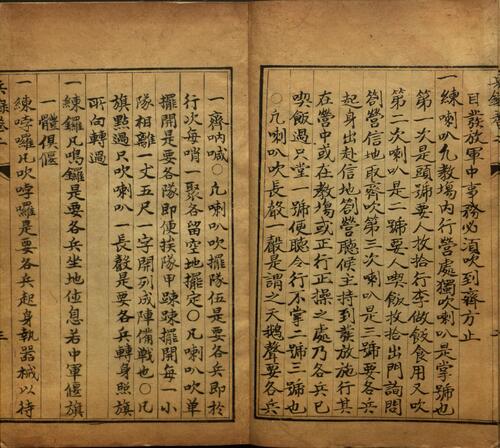 目發放軍中事務必須吹到齊方止
一練喇叭凢教場內行營處獨吹喇叭是掌號也
第一次是頭號要人收拾行李做飯食用又吹
第二次喇叭是二號要人喫飯收拾出門詢問
劄營信地取齊吹第三次喇叭是三號要各兵
起身出赴信地劄營聽候主持到發放施行其
在營中或在教場或正行正操之處乃各兵已
喫飯過只堂一號便聽令行不掌二號三號也
○凢喇叭吹長聲一聲是謂之天鵝聲要各兵
一齊吶喊○凢喇叭吹擺隊伍是要各兵即於
行次每哨一聚各留空地擺定○凢喇叭吹單
擺開是要各隊即便挨隊甲踈踈擺開每一小
隊相離一丈五尺一字開列成陣備戰也○凢
旗點過只吹喇叭一長聲是要各兵轉身照旗
所向轉過
一練鑼凢鳴鑼是要各兵坐地休息若中軍偃旗
一體俱偃
一練哱囉凢吹哱囉是要各兵起身執器械以待
兵錄卷二
三